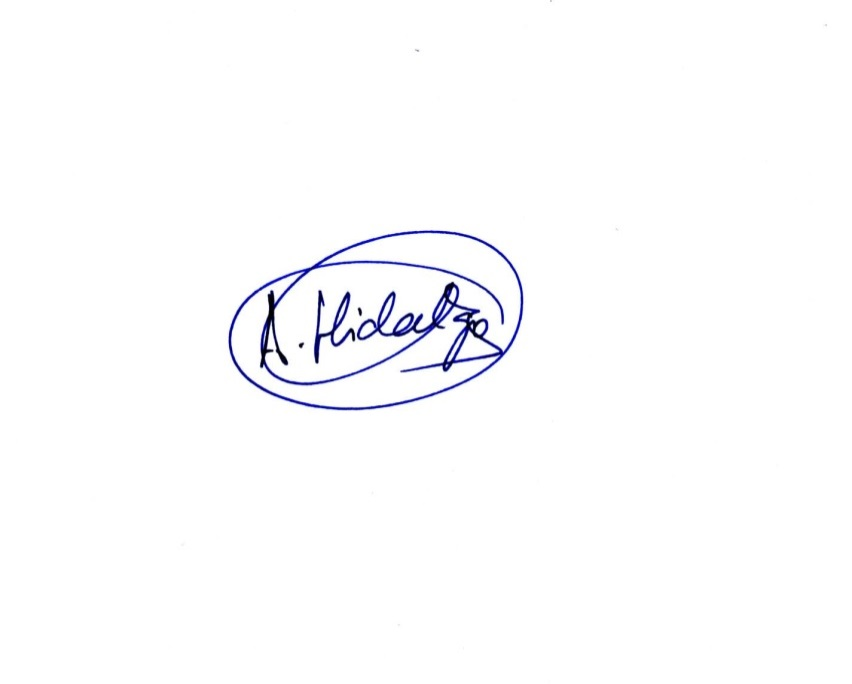 A. Hidalgo